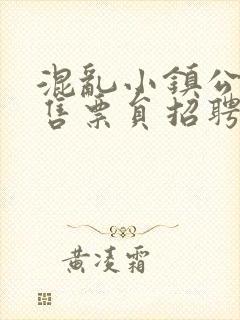 混亂小鎮公
售票員招聘
黃凌霜